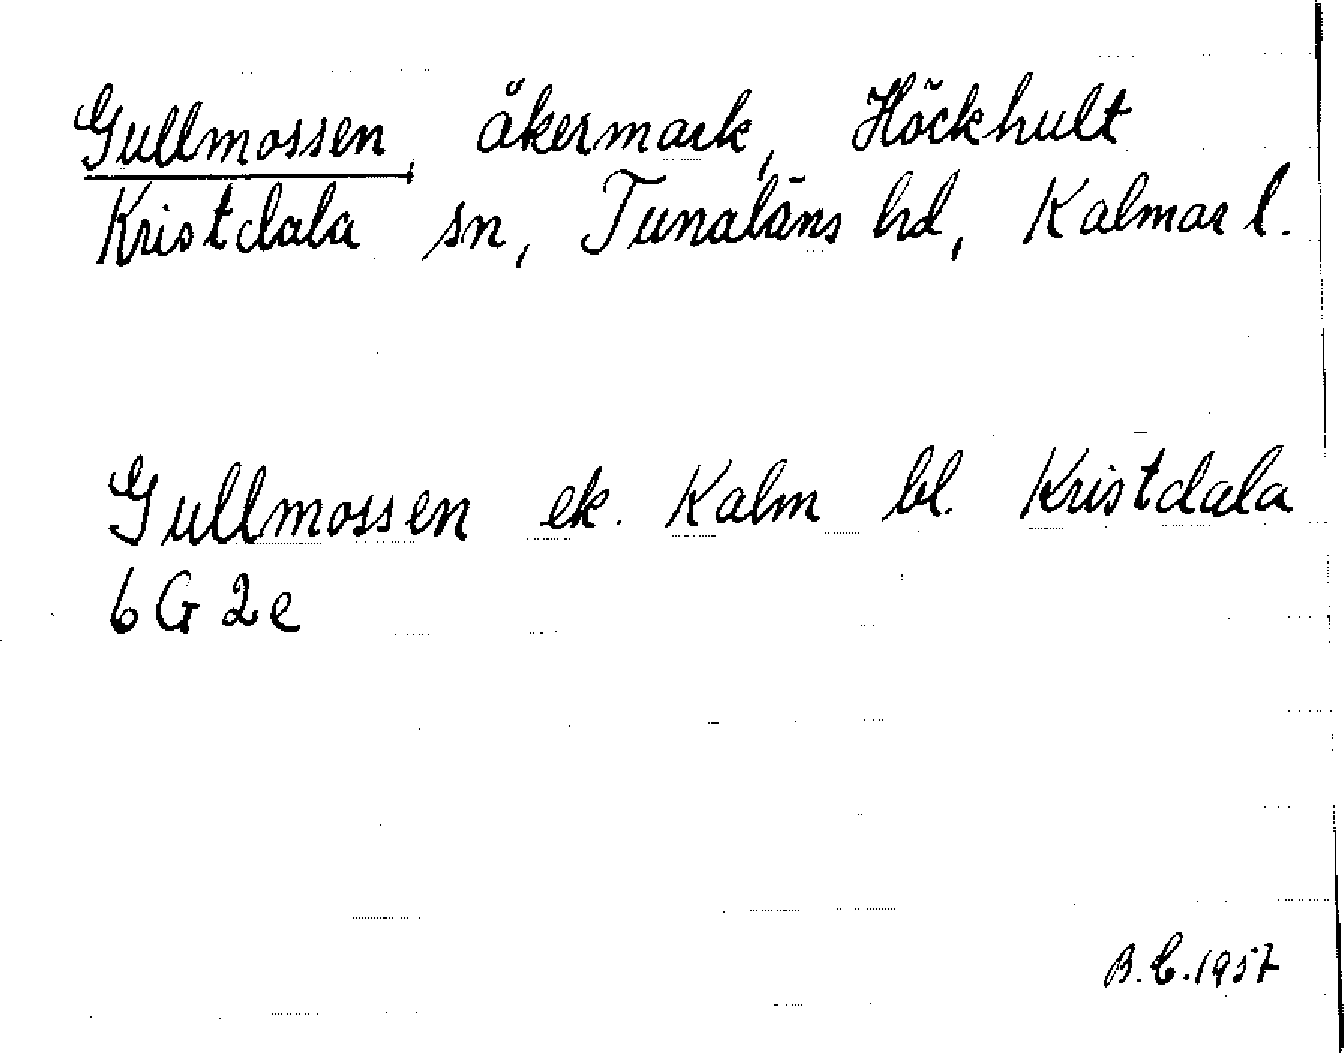 Gullmossen, åkermark, Höckhult
Kristdala sn, Tunaläns hd, Kalmar l.
Gullmossen ek. Kalm bl. Kristdala
6 G 2e
B.C. 1957